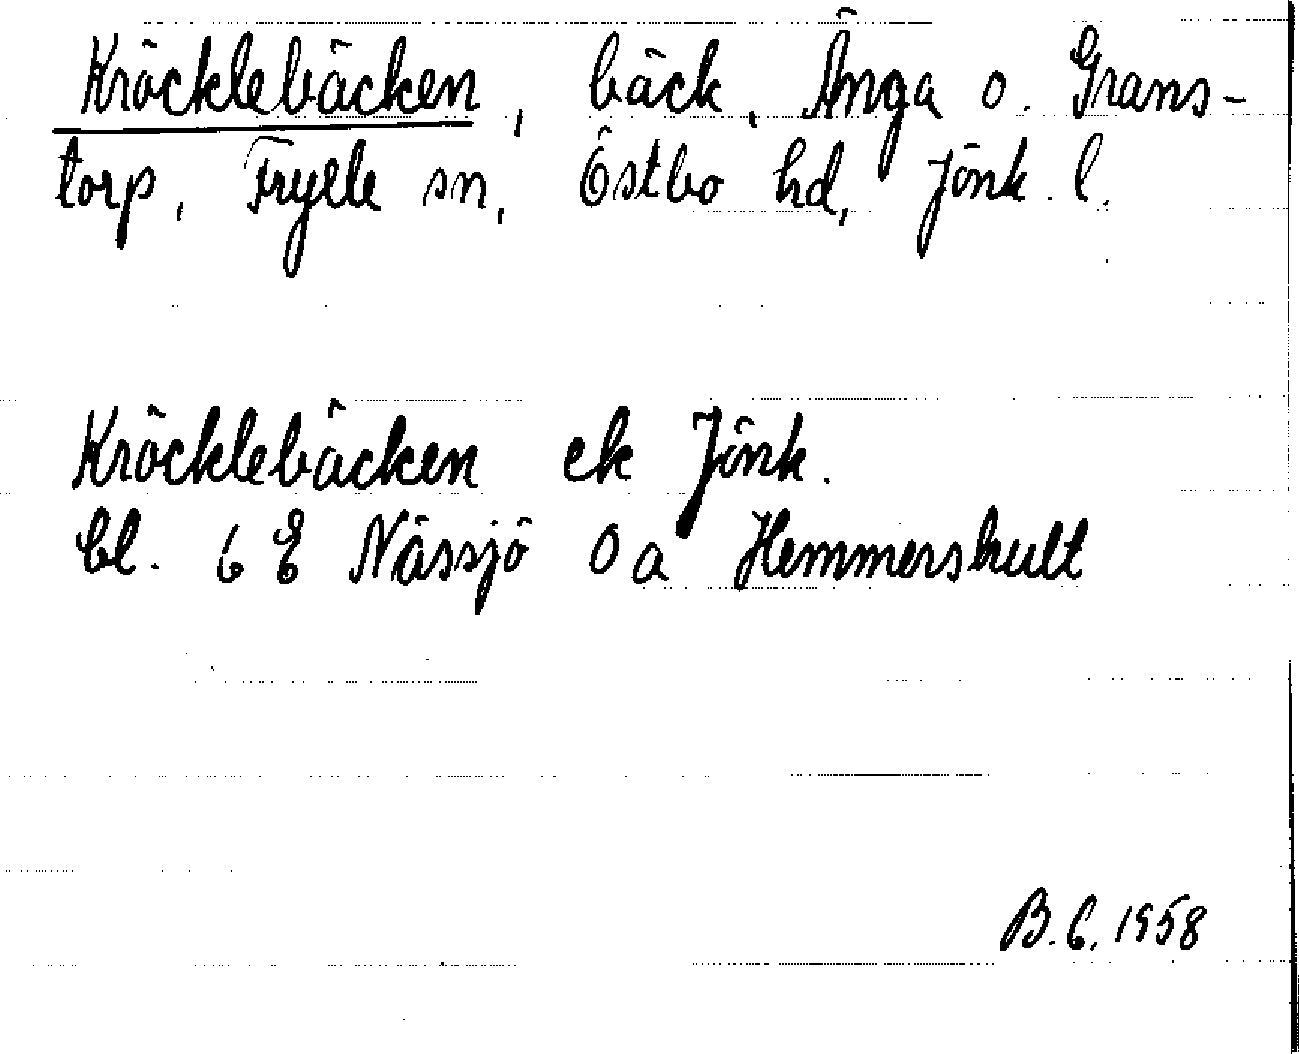 Kröcklebäcken, bäck, Änga o. Grans-
torp, Tryele sn, Östbo hd, Jönk. l.
Kröcklebäcken ek Jönk.
bl. 6 E Nässjö 0 a Hemmershult
B.C. 1958